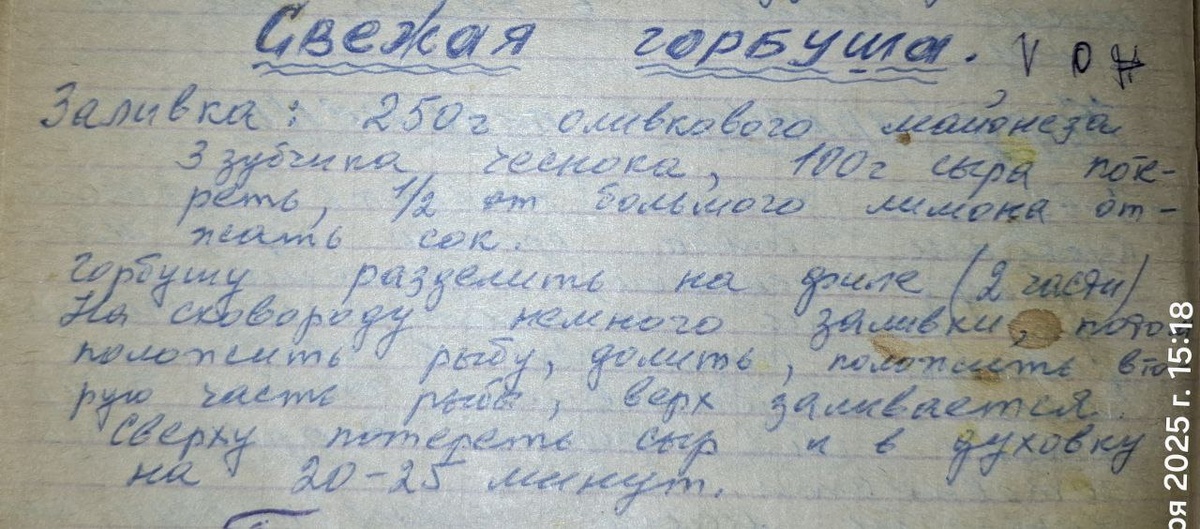 Свежая горбуша. V О Н
Заливка: 250г оливкового майонеза
3 зубчика чеснока, 100г сыра поте-
реть, 1/2 от большого лимона от-
жать сок.
Горбушу разделить на филе (2 части)
На сковороду немного заливки, потом
положить рыбу, долить, положить вто
рую часть рыбы, верх заливается.
Сверху потереть сыр и в духовку
на 20-25 минут.
ря 2025 г. 15:18